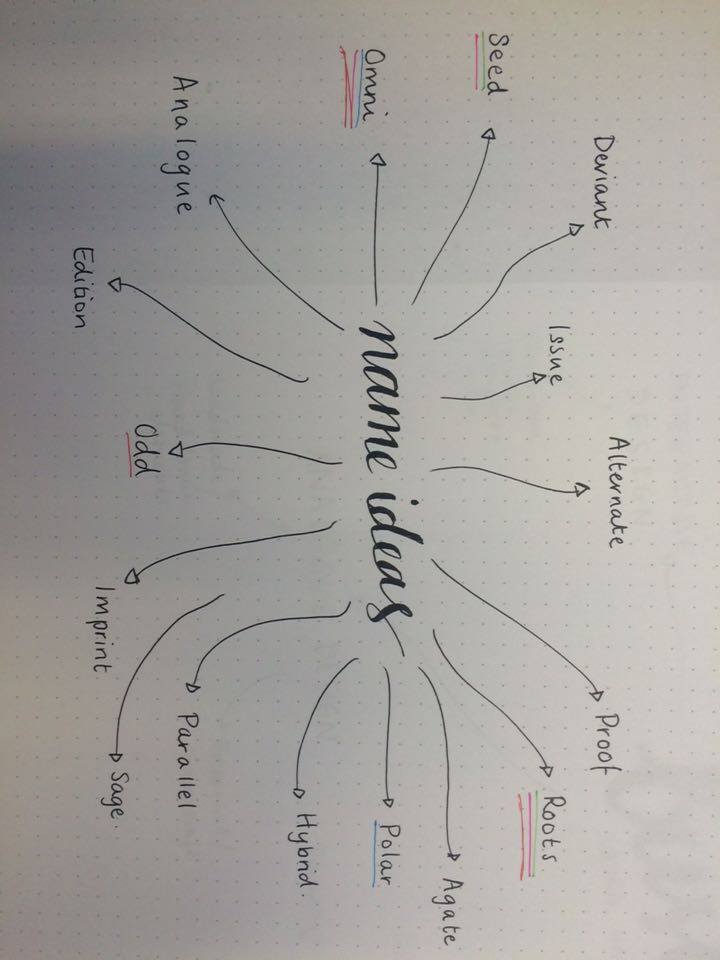 name ideas
Deviant
Issue
Alternate
Proof
Roots
Agate
Polar
Hybrid.
Parallel
Sage.
Imprint
Odd
Edition
Analogue
Omni
Seed